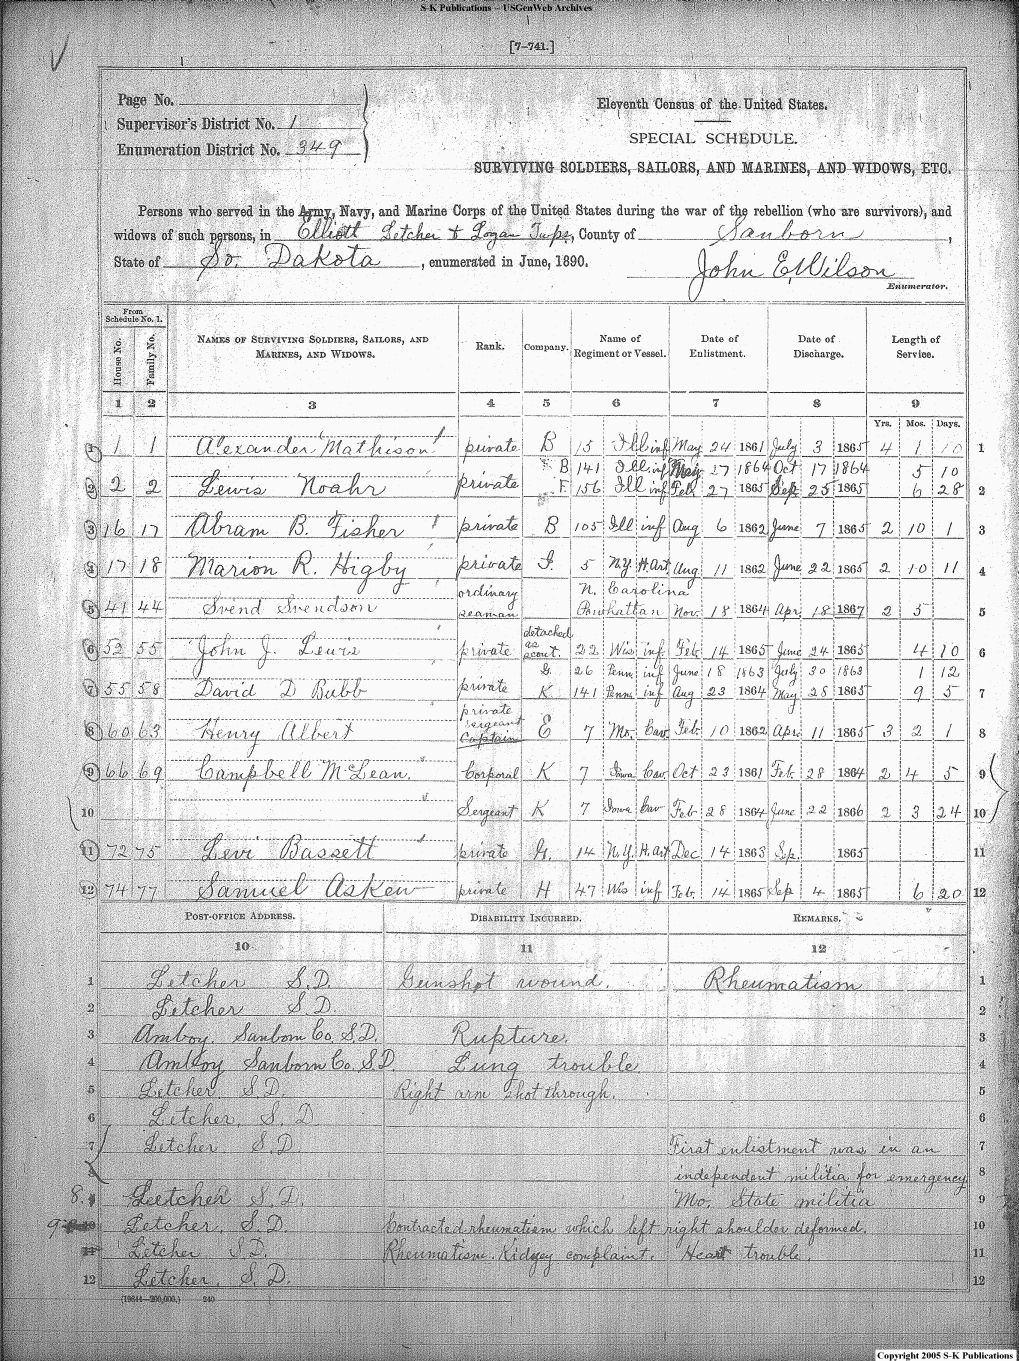 S-K Publications – USGenWeb Archives
[7-741.]
Page No.
Supervisor's District No. 1
Enumeration District No. 349
Eleventh Census of the United States.
SPECIAL SCHEDULE.
SURVIVING SOLDIERS, SAILORS, AND MARINES, AND WIDOWS, ETC.
Persons who served in the Army, Navy, and Marine Corps of the United States during the war of the rebellion (who are survivors), and
widows of such persons, in Elliott Letcher & Logan Tups, County of Sanborn,
State of So. Dakota, enumerated in June, 1890. John E. Wilson
Enumerator.
From Schedule No. 1.
House No. Family No. Names of Surviving Soldiers, Sailors, and Marines, and Widows. Rank. Company. Name of Regiment or Vessel. Date of Enlistment. Date of Discharge. Length of Service.
1 2 3 4 5 6 7 8 9
Yrs. Mos. Days.
1 1 1 Alexander Mathison private B 15 Ill inf May 24 1861 July 3 1865 4 1 10 1
B 141 Ill inf May 17 1864 Oct 17 1864 5 10
2 2 2 Lewis Noahr private F 156 Ill inf Feb 27 1865 Sep 25 1865 6 28 2
3 16 17 Abram B. Fisher private B 105 Ill inf Aug 6 1862 June 7 1865 2 10 1 3
4 17 18 Marion R. Higby private 5 N.Y. H. art Aug 11 1862 June 22 1865 2 10 11 4
ordinary N. Carolina
5 41 44 Svend Svendson seaman Powhattan Nov. 18 1864 Apr. 18 1867 2 5 5
detached
6 52 55 John J. Lewis private as scout. 22 Wis inf. Feb. 14 1865 June 24 1865 4 10 6
G. 26 Penn inf June 18 1863 July 30 1863 1 12
7 55 58 David D Bubb private K 141 Penn inf Aug 23 1864 May 28 1865 9 5 7
private
sergeant
8 60 63 Henry Albert Captain E 7 Mo. Cav. Feb. 10 1862 Apr. 11 1865 3 2 1 8
9 66 69 Campbell McLean. Corporal K 7 Iowa Cav. Oct 23 1861 Feb. 28 1864 2 4 5 9
10 Sergeant K 7 Iowa Cav Feb 28 1864 June 22 1866 2 3 24 10
11 72 75 Levi Bassett private G. 14 N.Y. H. art Dec 14 1863 Sep. 1865 11
12 74 77 Samuel Askew private H 47 Wis inf Feb. 14 1865 Sep 4 1865 6 20 12
Post-office Address. Disability Incurred. Remarks.
10 11 12
1 Letcher S.D. Gunshot wound. Rheumatism 1
2 Letcher S.D. 2
3 Amboy. Sanborn Co. S.D. Rupture. 3
4 Amboy Sanborn Co. S.D. Lung trouble 4
5 Letcher S.D. Right arm shot through. 5
6 Letcher, S. D 6
7 Letcher. S.D. First enlistment was in an 7
8 independent militia for emergency 8
8. Letcher S.D. Mo. State militia 9
9 Letcher, S.D. Contracted rheumatism which left right shoulder deformed. 10
11 Letcher S.D. Rheumatism. Kidney complaint. Heart trouble. 11
12 Letcher, S. D. 12
(19644—200,000.) 240
Copyright 2005 S-K Publications